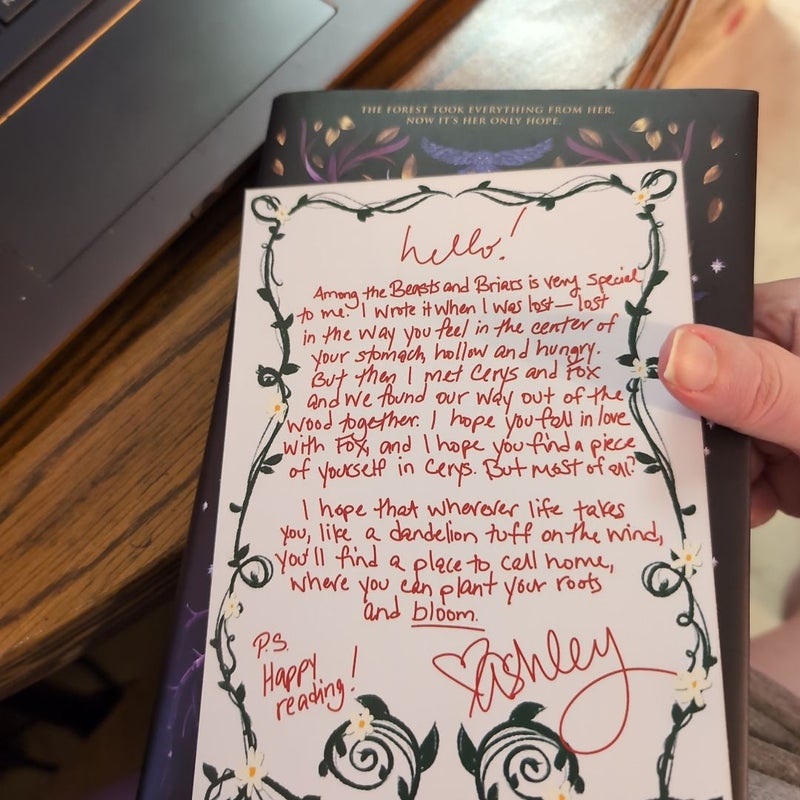 THE FOREST TOOK EVERYTHING FROM HER.
NOW IT'S HER ONLY HOPE.
hello!
Among the Beasts and Briars is very special
to me. I wrote it when I was lost—lost
in the way you feel in the center of
your stomach, hollow and hungry.
But then I met Cerys and Fox
and we found our way out of the
wood together. I hope you fall in love
with Fox, and I hope you find a piece
of yourself in Cerys. But most of all?
I hope that wherever life takes
you, like a dandelion tuff on the wind,
you'll find a place to call home,
where you can plant your roots
and bloom.
P.S.
Happy
reading!
ashley